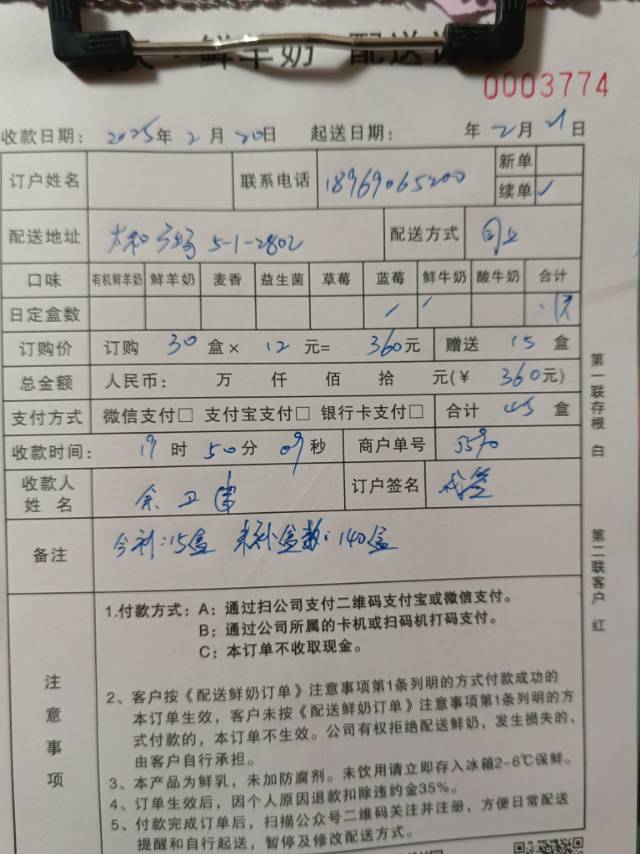 鲜羊奶 配送订
0003774
收款日期: 2025年2月20日 起送日期: 年2月21日
订户姓名 联系电话 18969065200 新单
续单✓
配送地址 太和广场 5-1-2802 配送方式
口味 有机鲜羊奶 鲜羊奶 麦香 益生菌 草莓 蓝莓 鲜牛奶 酸牛奶 合计
日定盒数 / /
订购价 订购 30 盒× 12 元= 360元 赠送 15 盒
总金额 人民币: 万 仟 佰 拾 元(¥ 360元)
支付方式 微信支付□ 支付宝支付□ 银行卡支付□ 合计 45 盒
收款时间: 19时50分09秒 商户单号 5590
收款人姓名 余卫 订户签名 代签
备注 今补:15盒 未补盒数:140盒
注意事项
1.付款方式:A:通过扫公司支付二维码支付宝或微信支付。
B:通过公司所属的卡机或扫码机打码支付。
C:本订单不收取现金。
2、客户按《配送鲜奶订单》注意事项第1条列明的方式付款成功的
本订单生效,客户未按《配送鲜奶订单》注意事项第1条列明的方
式付款的,本订单不生效。公司有权拒绝配送鲜奶,发生损失的,
由客户自行承担。
3、本产品为鲜乳,未加防腐剂。未饮用请立即存入冰箱2-6℃保鲜。
4、订单生效后,因个人原因退款扣除违约金35%。
5、付款完成订单后,扫描公众号二维码关注并注册,方便日常配送
提醒和自行起送,暂停及修改配送方式。
第一联存根 白
第二联客户 红